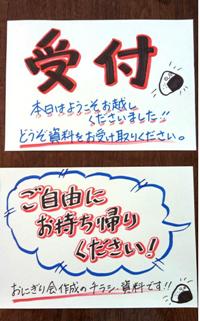 受付
本日はようこそお越し
くださいました!!
どうぞ資料をお受け取りください。
ご自由に
お持ち帰り
ください!
おにぎり会作成のチラシ・資料です!!